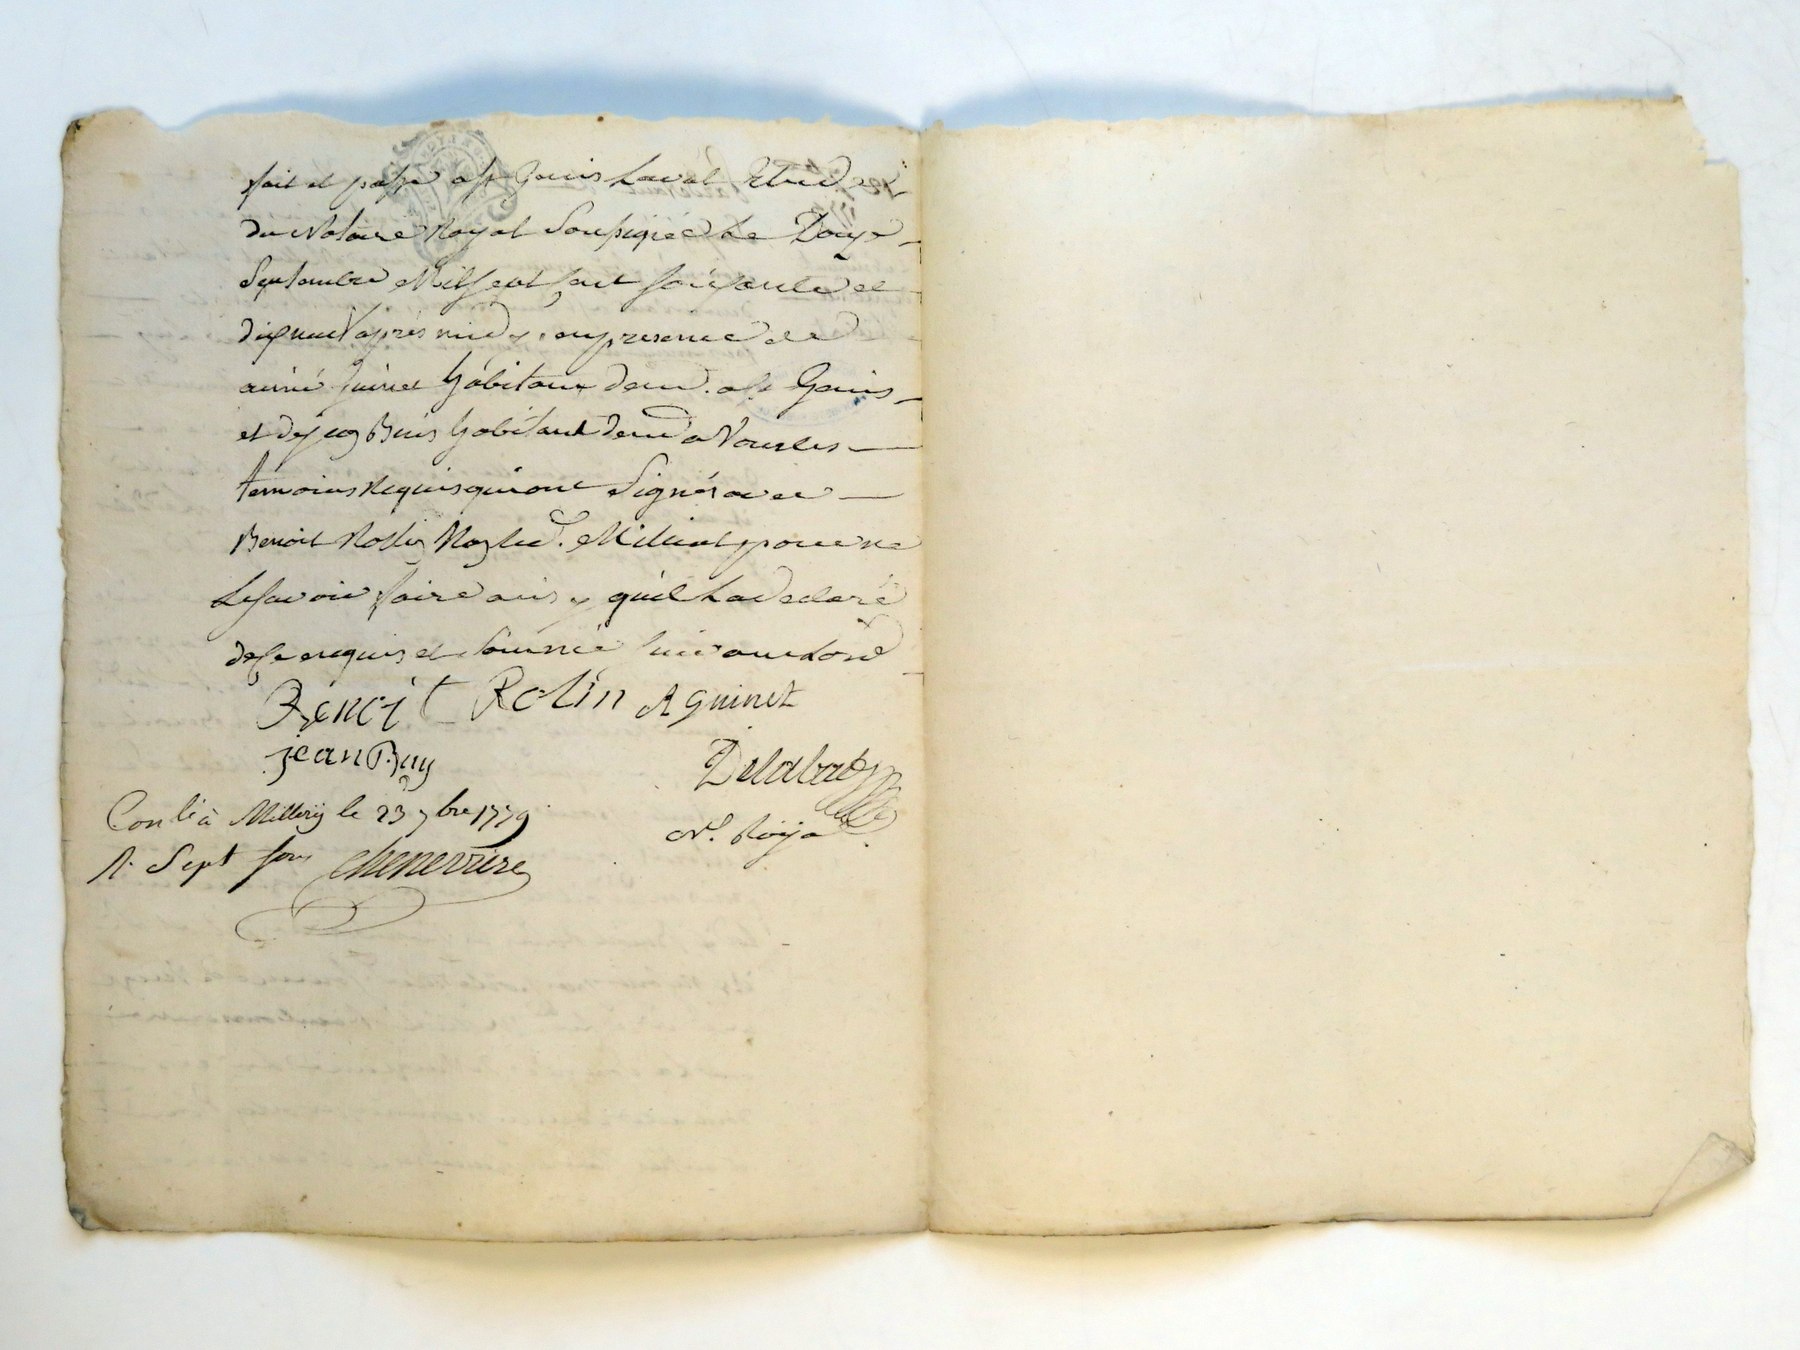 fait et passé a St Genis Laval Etude
du Notaire Royal Soussigné Le Douze
Septembre Mil sept cent soixante et
dixneuf après midy, en presence de
aimé guinet habitant dem. a St Genis
et de jean Buis habitant dem a Vourles
temoins Requis qui ont Signés avec
Benoit Rollin Non led. Milliat pour ne
Le savoir faire ainsy qu'il La declaré
de ce enquis et Sommé suivant Lord
Benoit Rolin A guinet
jean Buy
Delabat
Con lé à Millery le 23 7bre 1779
Nre. Roya
R. Sept sous chenerriere